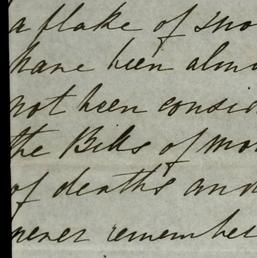 a flake of sno
have been alm
not been consid
the Bills of mo
of deaths and
never remembe